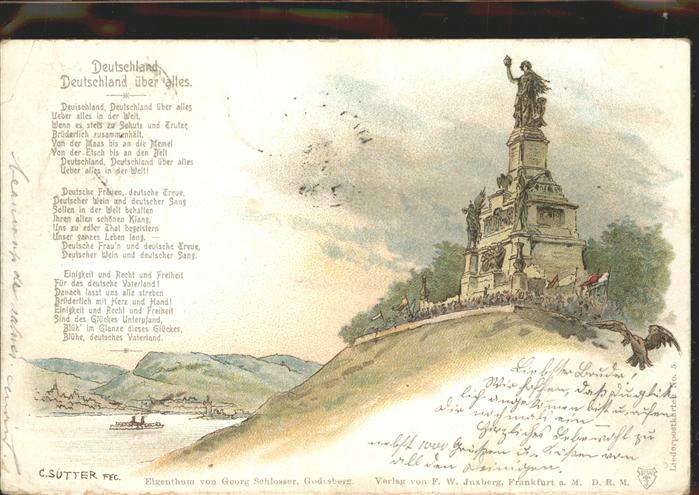 Deutschland,
Deutschland über alles.
Deutschland, Deutschland über alles
Ueber alles in der Welt,
Wenn es stets zu Schutz und Trutze
Brüderlich zusammenhält,
Von der Maas bis an die Memel
Von der Etsch bis an den Belt
Deutschland, Deutschland über alles
Ueber alles in der Welt!
Deutsche Frauen, deutsche Treue,
Deutscher Wein und deutscher Sang
Sollen in der Welt behalten
Ihren alten schönen Klang,
Uns zu edler That begeistern
Unser ganzes Leben lang. —
Deutsche Frau'n und deutsche Treue,
Deutscher Wein und deutscher Sang.
Einigkeit und Recht und Freiheit
Für das deutsche Vaterland!
Danach lasst uns alle streben
Brüderlich mit Herz und Hand!
Einigkeit und Recht und Freiheit
Sind des Glückes Unterpfand,
Blüh' im Glanze dieses Glückes,
Blühe, deutsches Vaterland.
Liebster Bruder!
Wir hoffen, daß Du glück
lich angekommen bist u.
Dir nochmals ein
herzliches Lebewohl zu
nebst 1000 Grüßen u. Küßen von
all den Deinigen.
Liederpostkarten No. 5.
C. SUTTER FEC.
Eigenthum von Georg Schlosser, Godesberg.
Verlag von F. W. Juxberg, Frankfurt a. M. D. R. M.